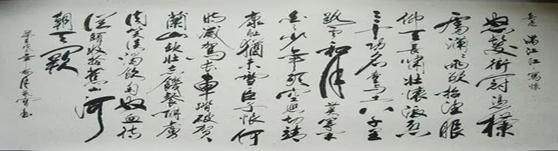 岳飞 满江红 写怀
怒髮衝冠凭栏
處潇潇雨歇抬望眼
仰天長啸壮懷激烈
三十功名塵與土八千里
路雲和月莫等閒
白少年頭空悲切靖
康耻猶未雪臣子恨何
時滅駕長車踏破賀
蘭山缺壮志饑餐胡虜
肉笑談渴飲匈奴血待
從頭收拾舊山河
朝天闕